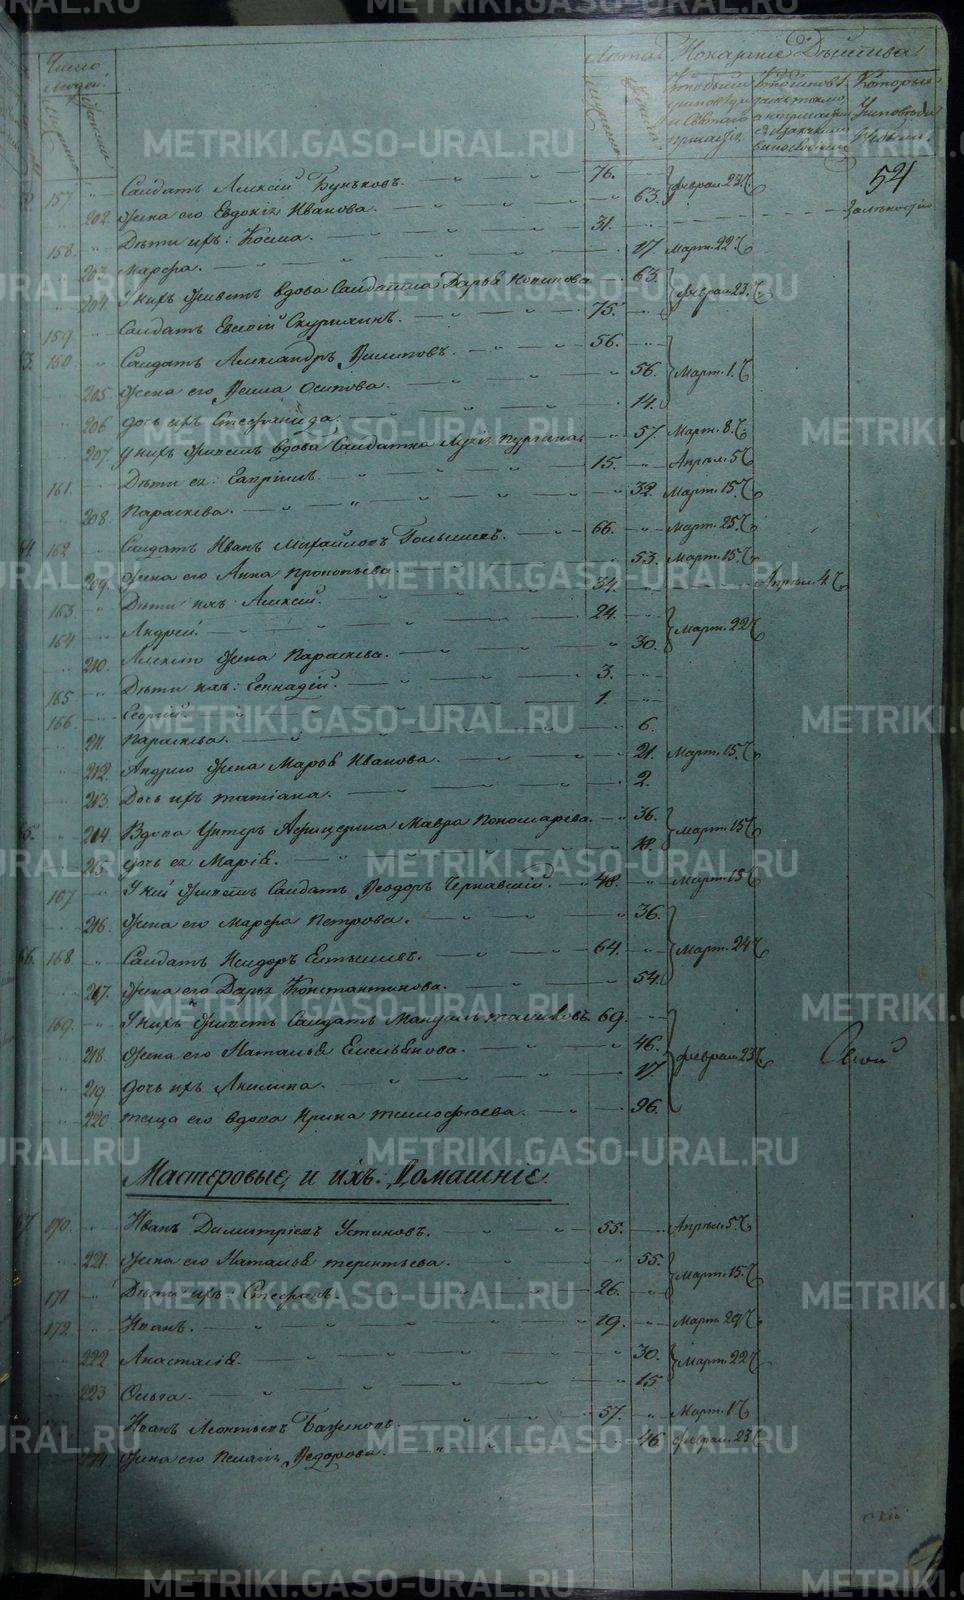 Число людей.
Лѣта
Показаніе Дѣйства
54
157. Салдатъ Алексій Буньковъ. 76. Феврал. 23.
202. Жена его Евдокія Иванова. 63.
158. Дѣти ихъ: Косма. 31.
203. Марѳа. 17 Март. 22.
204. У нихъ живетъ вдова Салдатка Дарья 63.
159. Салдатъ Евсѣвій 75. Феврал. 23.
160. Салдатъ Александръ Филиповъ. 56.
205. Жена его Осипова. 56. Март. 1.
206. Дочь ихъ Стефанида. 14.
207. У нихъ живетъ вдова Салдатка 57. Март. 8.
161. Дѣти ея: 15. Апрѣл. 5
208. Параскева. 32. Март. 15.
162 Салдатъ Иванъ Михайловъ 66. Март. 25.
209. Жена его Анна Прокопьева. 53. Март. 15.
163 Дѣти ихъ: Алексій. 34. Апрѣл. 4.
164 Андрей. 24.
210. Алексѣя Жена Параскева. 30. Март. 22
165 Дѣти ихъ: Геннадій. 3.
166 Георгій. 1.
211. Параскева. 6.
212. Андрея Жена Марѳа Иванова. 21. Март. 15.
213. Дочь ихъ Татіана. 2.
214. Вдова Унтеръ Афицерша Мавра Пономарева. 36.
215. Дочь ея Марія. 18. Март. 15
167 У ней живетъ Салдатъ Ѳеодоръ Чернавскій. 48. Март. 15
216. Жена его Марѳа Петрова. 36.
168 Салдатъ Исидоръ 64. Март. 24
217. Жена его Дарья Константинова. 54.
169. У нихъ живетъ Салдатъ 69.
218. Жена его Наталья Емельянова. 46.
219. Дочь ихъ Акилина. 17. Феврал. 23.
220 Теща его вдова Ирина Тимоѳеева. 96.
Мастеровые, и ихъ Домашніе.
170. Иванъ Димитріевъ Устиновъ. 55. Апрѣл. 5.
221. Жена его Наталья Терентьева. 55.
171 Дѣти ихъ: Стефанъ. 26. Март. 15.
172. Иванъ. 19. Март. 29.
222 Анастасія. 30. Март. 22
223 Ольга. 15
Иванъ Леонтьевъ Баженовъ. 57. Март. 1.
Жена его Пелагія Ѳедорова. 46 Феврал. 23
METRIKI.GASO-URAL.RU